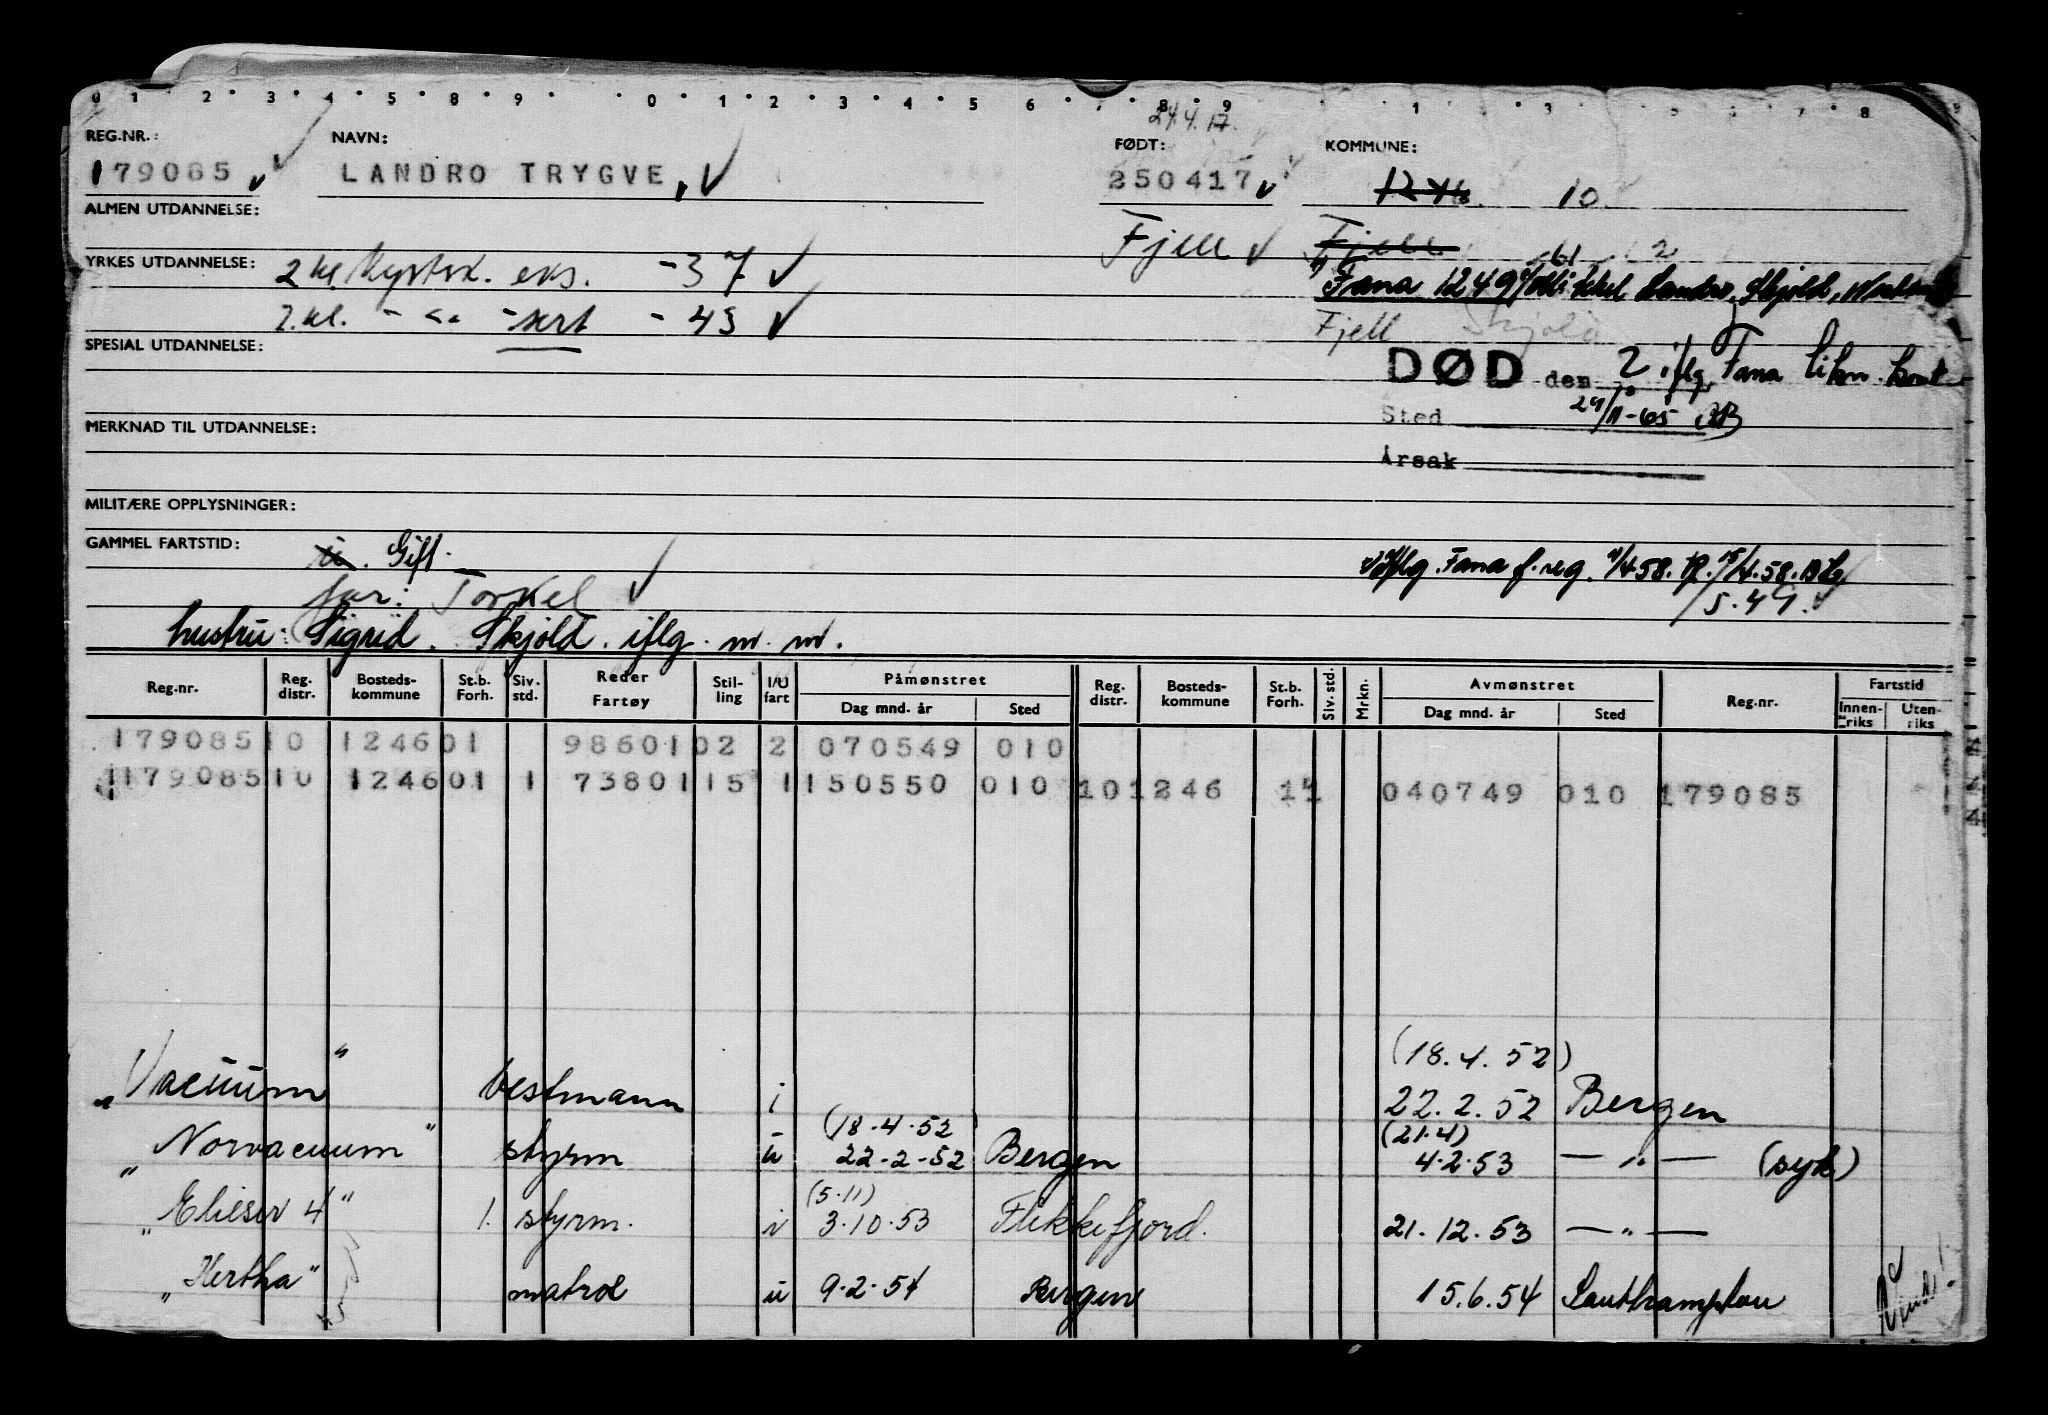 0 1 2 3 4 5 8 9 0 1 2 3 4 5 6 7 8 9 1 3 7 8
24.4.17.
REG.NR.: NAVN: FØDT: KOMMUNE:
179085 LANDRO TRYGVE, 250417 1246 10
ALMEN UTDANNELSE: Fjell Fjell
61 2
YRKES UTDANNELSE: 2 kl Kystsk. eks. - 37 Fana 1249 Landro, Skjold,
2.kl. - " - sert - 43 Fjell Skjold
SPESIAL UTDANNELSE: DØD den 2 iflg Fana likn. kont
Sted 24/11-65
MERKNAD TIL UTDANNELSE:
Årsak
MILITÆRE OPPLYSNINGER:
GAMMEL FARTSTID: u. Gift.
iflg. Fana f.reg. 4.58. 15/4.58.
far: Torkel 5.49.
hustru: Sigrid. Skjold. iflg. m. m.
Reg.nr. Reg. distr. Bosteds-kommune St.b. Forh. Siv. std. Reder Fartøy Stil-ling I/U fart Påmønstret Dag mnd. år Sted Reg. distr. Bosteds-kommune St.b. Forh. Siv. std. Mrkn. Avmønstret Dag mnd. år Sted Reg.nr. Fartstid Innen-riks Uten-riks
179085 10 1246 01 98601 02 2 070549 010
179085 10 1246 01 1 73801 15 1 150550 010 10 1246 11 040749 010 179085
(18.4.52)
"Vacuum" bestmann i 22.2.52 Bergen
(18.4.52) (21.4)
"Norvacuum" styrm u 22-2-52 Bergen 4.2.53 — " — (syk)
(5.11)
"Elieser 4" 1. styrm. i 3.10.53 Flekkefjord. 21.12.53 — " —
"Hertha" matros u 9.2.54 Bergen 15.6.54 Southampton